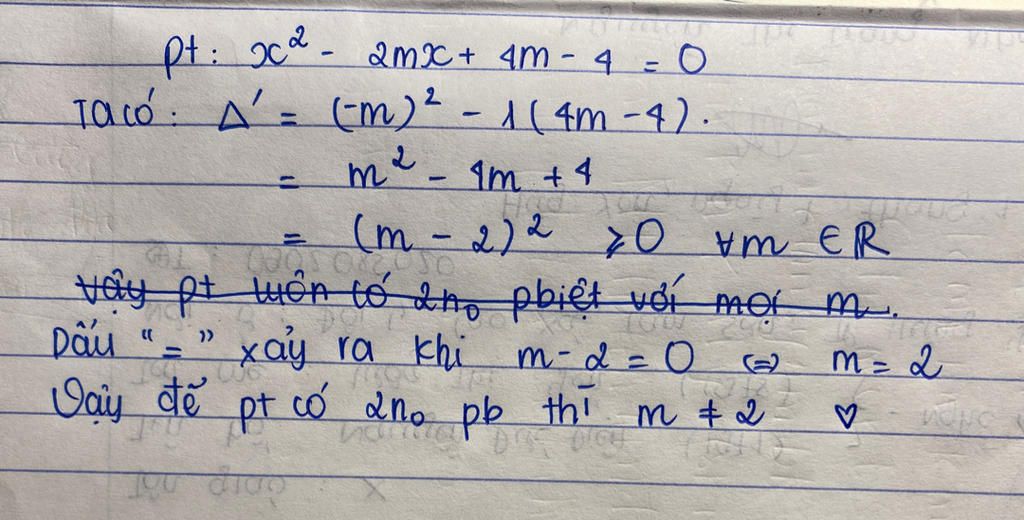 pt: x² - 2mx + 4m - 4 = 0
Ta có: Δ' = (-m)² - 1(4m - 4).
= m² - 4m + 4
= (m - 2)² ⩾ 0 ∀m ∈ R
vậy pt luôn có 2n₀ pbiệt với mọi m.
Dấu "=" xảy ra khi m - 2 = 0 ⇔ m = 2
Vậy để pt có 2n₀ pb thì m ≠ 2 ♡